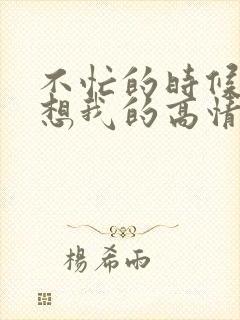 不忙的時候
想我的高情
楊希雨